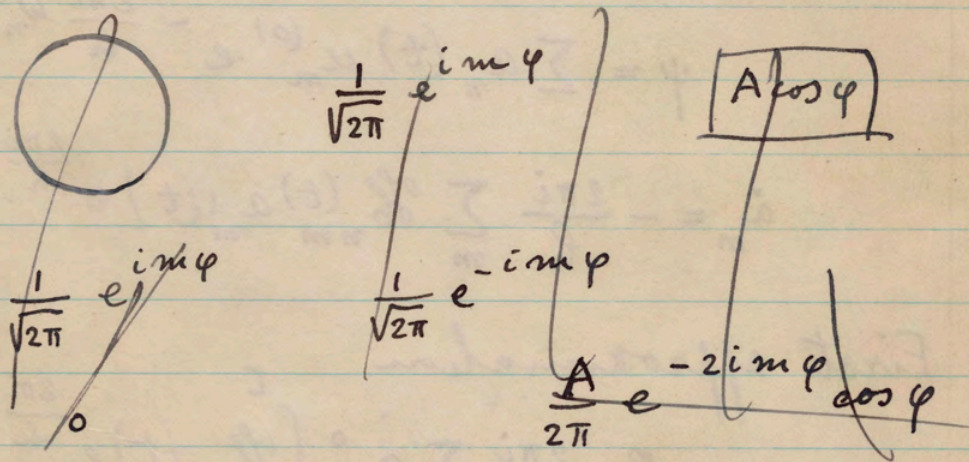 1/√2π e^{imφ} A cos φ
1/√2π e^{imφ} 1/√2π e^{-imφ}
0 A/2π e^{-2imφ} cos φ